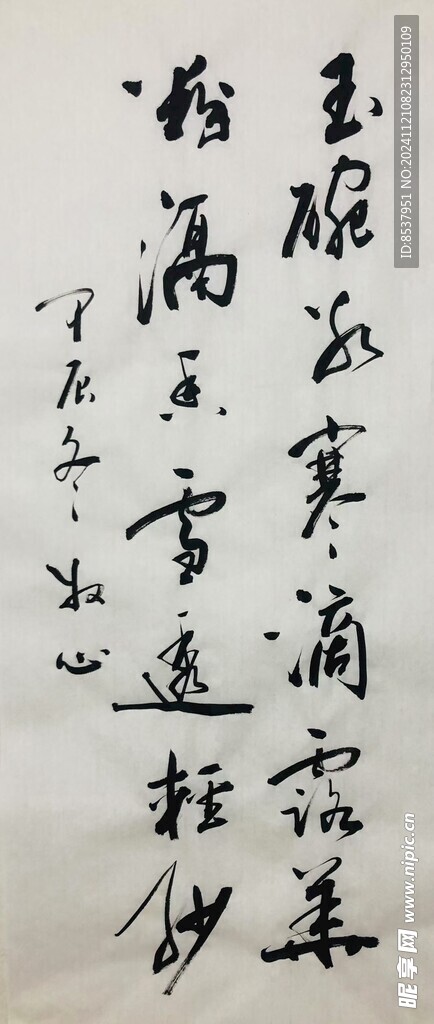 玉碗冰寒滴露華
粉融香雪透輕紗
甲辰冬牧心
ID:8537951 NO:20241121082312950109
昵享网 www.nipic.cn